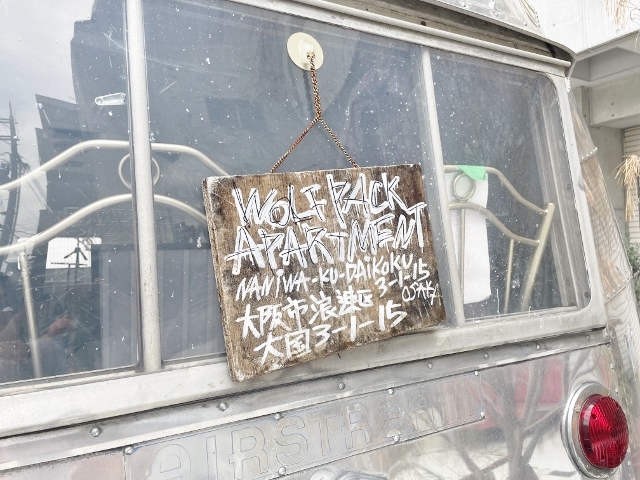 WOLF PACK
APARTMENT
NANIWA-KU-DAIKOKU
3-1-15
OSAKA
大阪市浪速区
大国3-1-15
AIRSTREAM